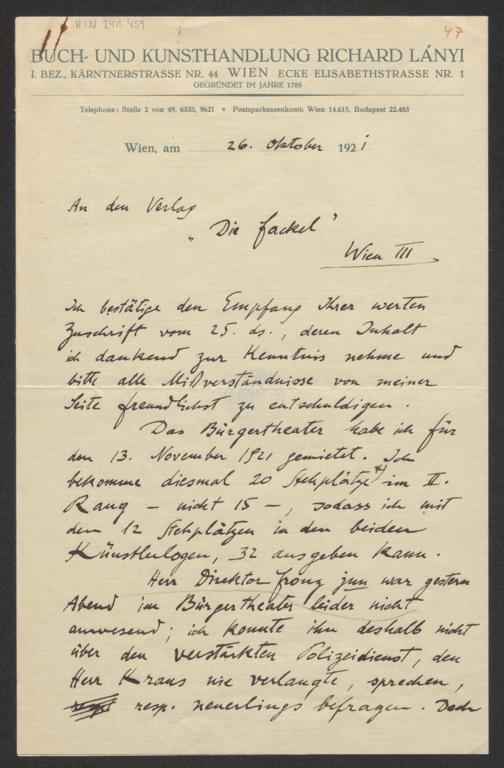 H.I.N. 241.459
47
BUCH- UND KUNSTHANDLUNG RICHARD LÁNYI
I. BEZ., KÄRNTNERSTRASSE NR. 44 WIEN ECKE ELISABETHSTRASSE NR. 1
GEGRÜNDET IM JAHRE 1785
Telephone: Stelle 2 von 49, 6333, 9621 • Postsparkassenkonti: Wien 14.615, Budapest 22.483
Wien, am 26. Oktober 1921
An den Verlag
"Die Fackel"
Wien III
Ich bestätige den Empfang Ihrer werten
Zuschrift vom 25. ds., deren Inhalt
ich dankend zur Kenntnis nehme und
bitte alle Mißverständnisse von meiner
Seite freundlichst zu entschuldigen.
Das Bürgertheater habe ich für
den 13. November 1921 gemietet. Ich
bekomme diesmal 20 Stehplätze im II.
Rang – nicht 15 –, sodass ich mit
den 12 Stehplätzen in den beiden
Künstlerlogen, 32 ausgeben kann.
Herr Direktor Fronz jun war gestern
Abend im Bürgertheater leider nicht
anwesend; ich konnte ihn deshalb nicht
über den verstärkten Polizeidienst, den
Herr Kraus nie verlangte, sprechen,
resp. neuerlings befragen. Doch